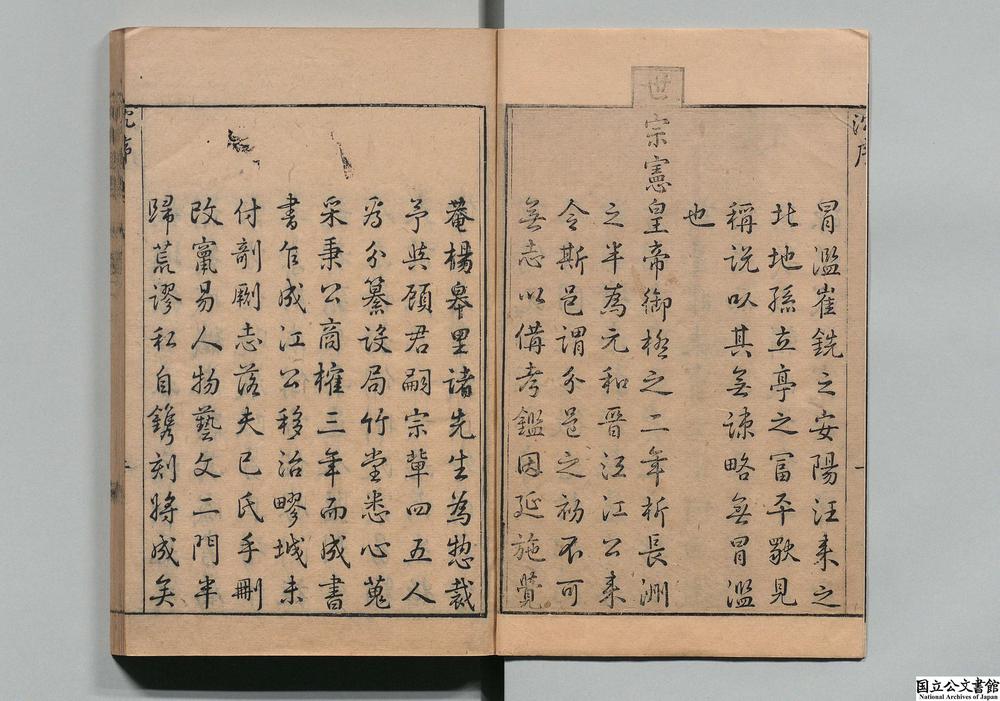 冐濫崔銑之安陽汪来之
北地孫立亭之富平歟見
稱説以其無諫略無冐濫
也
世宗憲皇帝御極之二年析長洲
之半為元和晉江江公来
令斯邑謂分邑之初不可
無志以備考鑑因延施覺
菴楊皋里諸先生為惣裁
予與顧君嗣宗輩四五人
為分纂設局竹堂悉心蒐
采秉公商榷三年而成書
書乍成江公移治嘐城未
付剞劂志落夫己氏手刪
改竄易人物藝文二門半
歸荒謬私自鐫刻將成矣
沈序
一
国立公文書館
National Archives of Japan